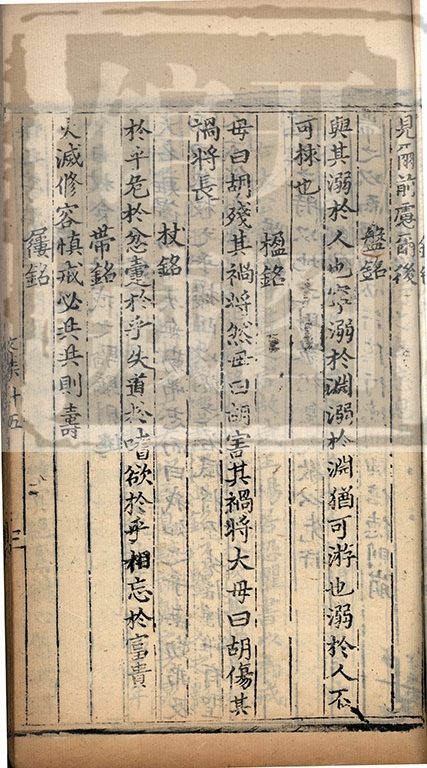 見爾前慮爾後
盤銘
與其溺於人也寧溺於淵溺於淵猶可游也溺於人不
可捄也
楹銘
毋曰胡殘其禍將然毋曰胡害其禍將大毋曰胡傷其
禍將長
杖銘
於乎危於忿疐於乎失道於嗜欲於乎相忘於富貴
帶銘
火滅修容慎戒必共共則壽
屨銘
文集十五